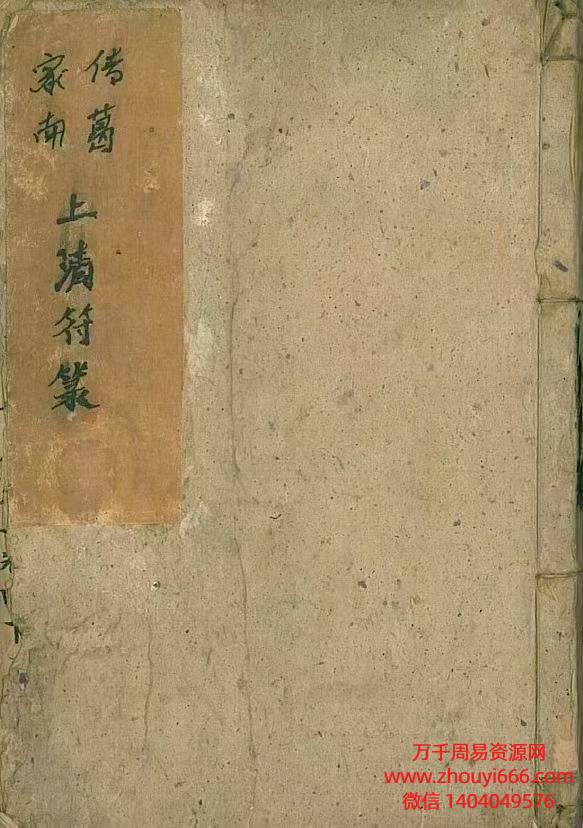 传葛
家南
上清符箓
万千周易资源网
www.zhouyi666.com
微信 1404049576